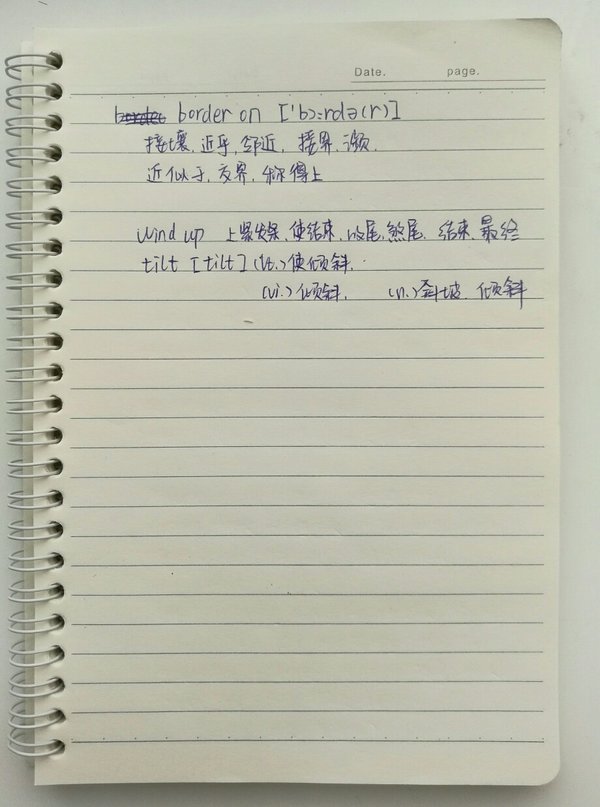 Date. page.
border on ['bɔ:rdə(r)]
接壤, 近乎, 邻近, 接界, 濒,
近似于, 交界, 称得上
wind up 上紧发条, 使结束, 收尾, 煞尾, 结束, 最终
tilt [tilt] (vt.) 使倾斜.
(vi.) 倾斜. (n.) 斜坡, 倾斜